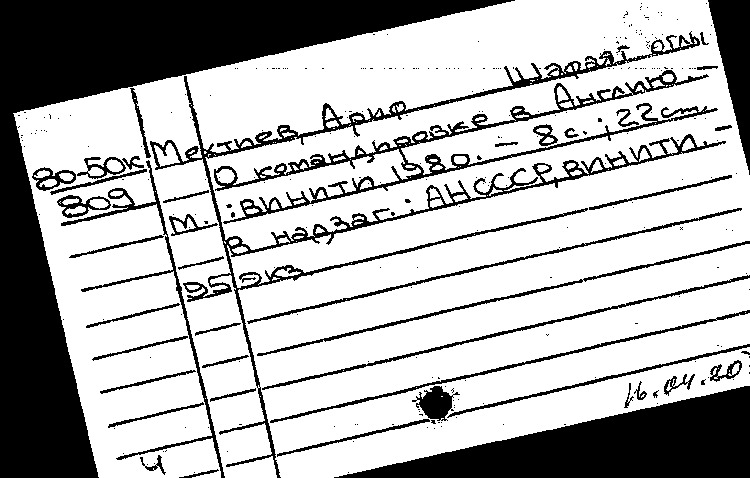 Мехтиев, Ариф Шафаят оглы
80-50к О командировке в Англию. -
809 М. : ВИНИТИ, 1980. - 8 с. ; 22 см.
В надзаг. : АНСССР, ВИНИТИ. -
95 экз.
16.04.80
ч